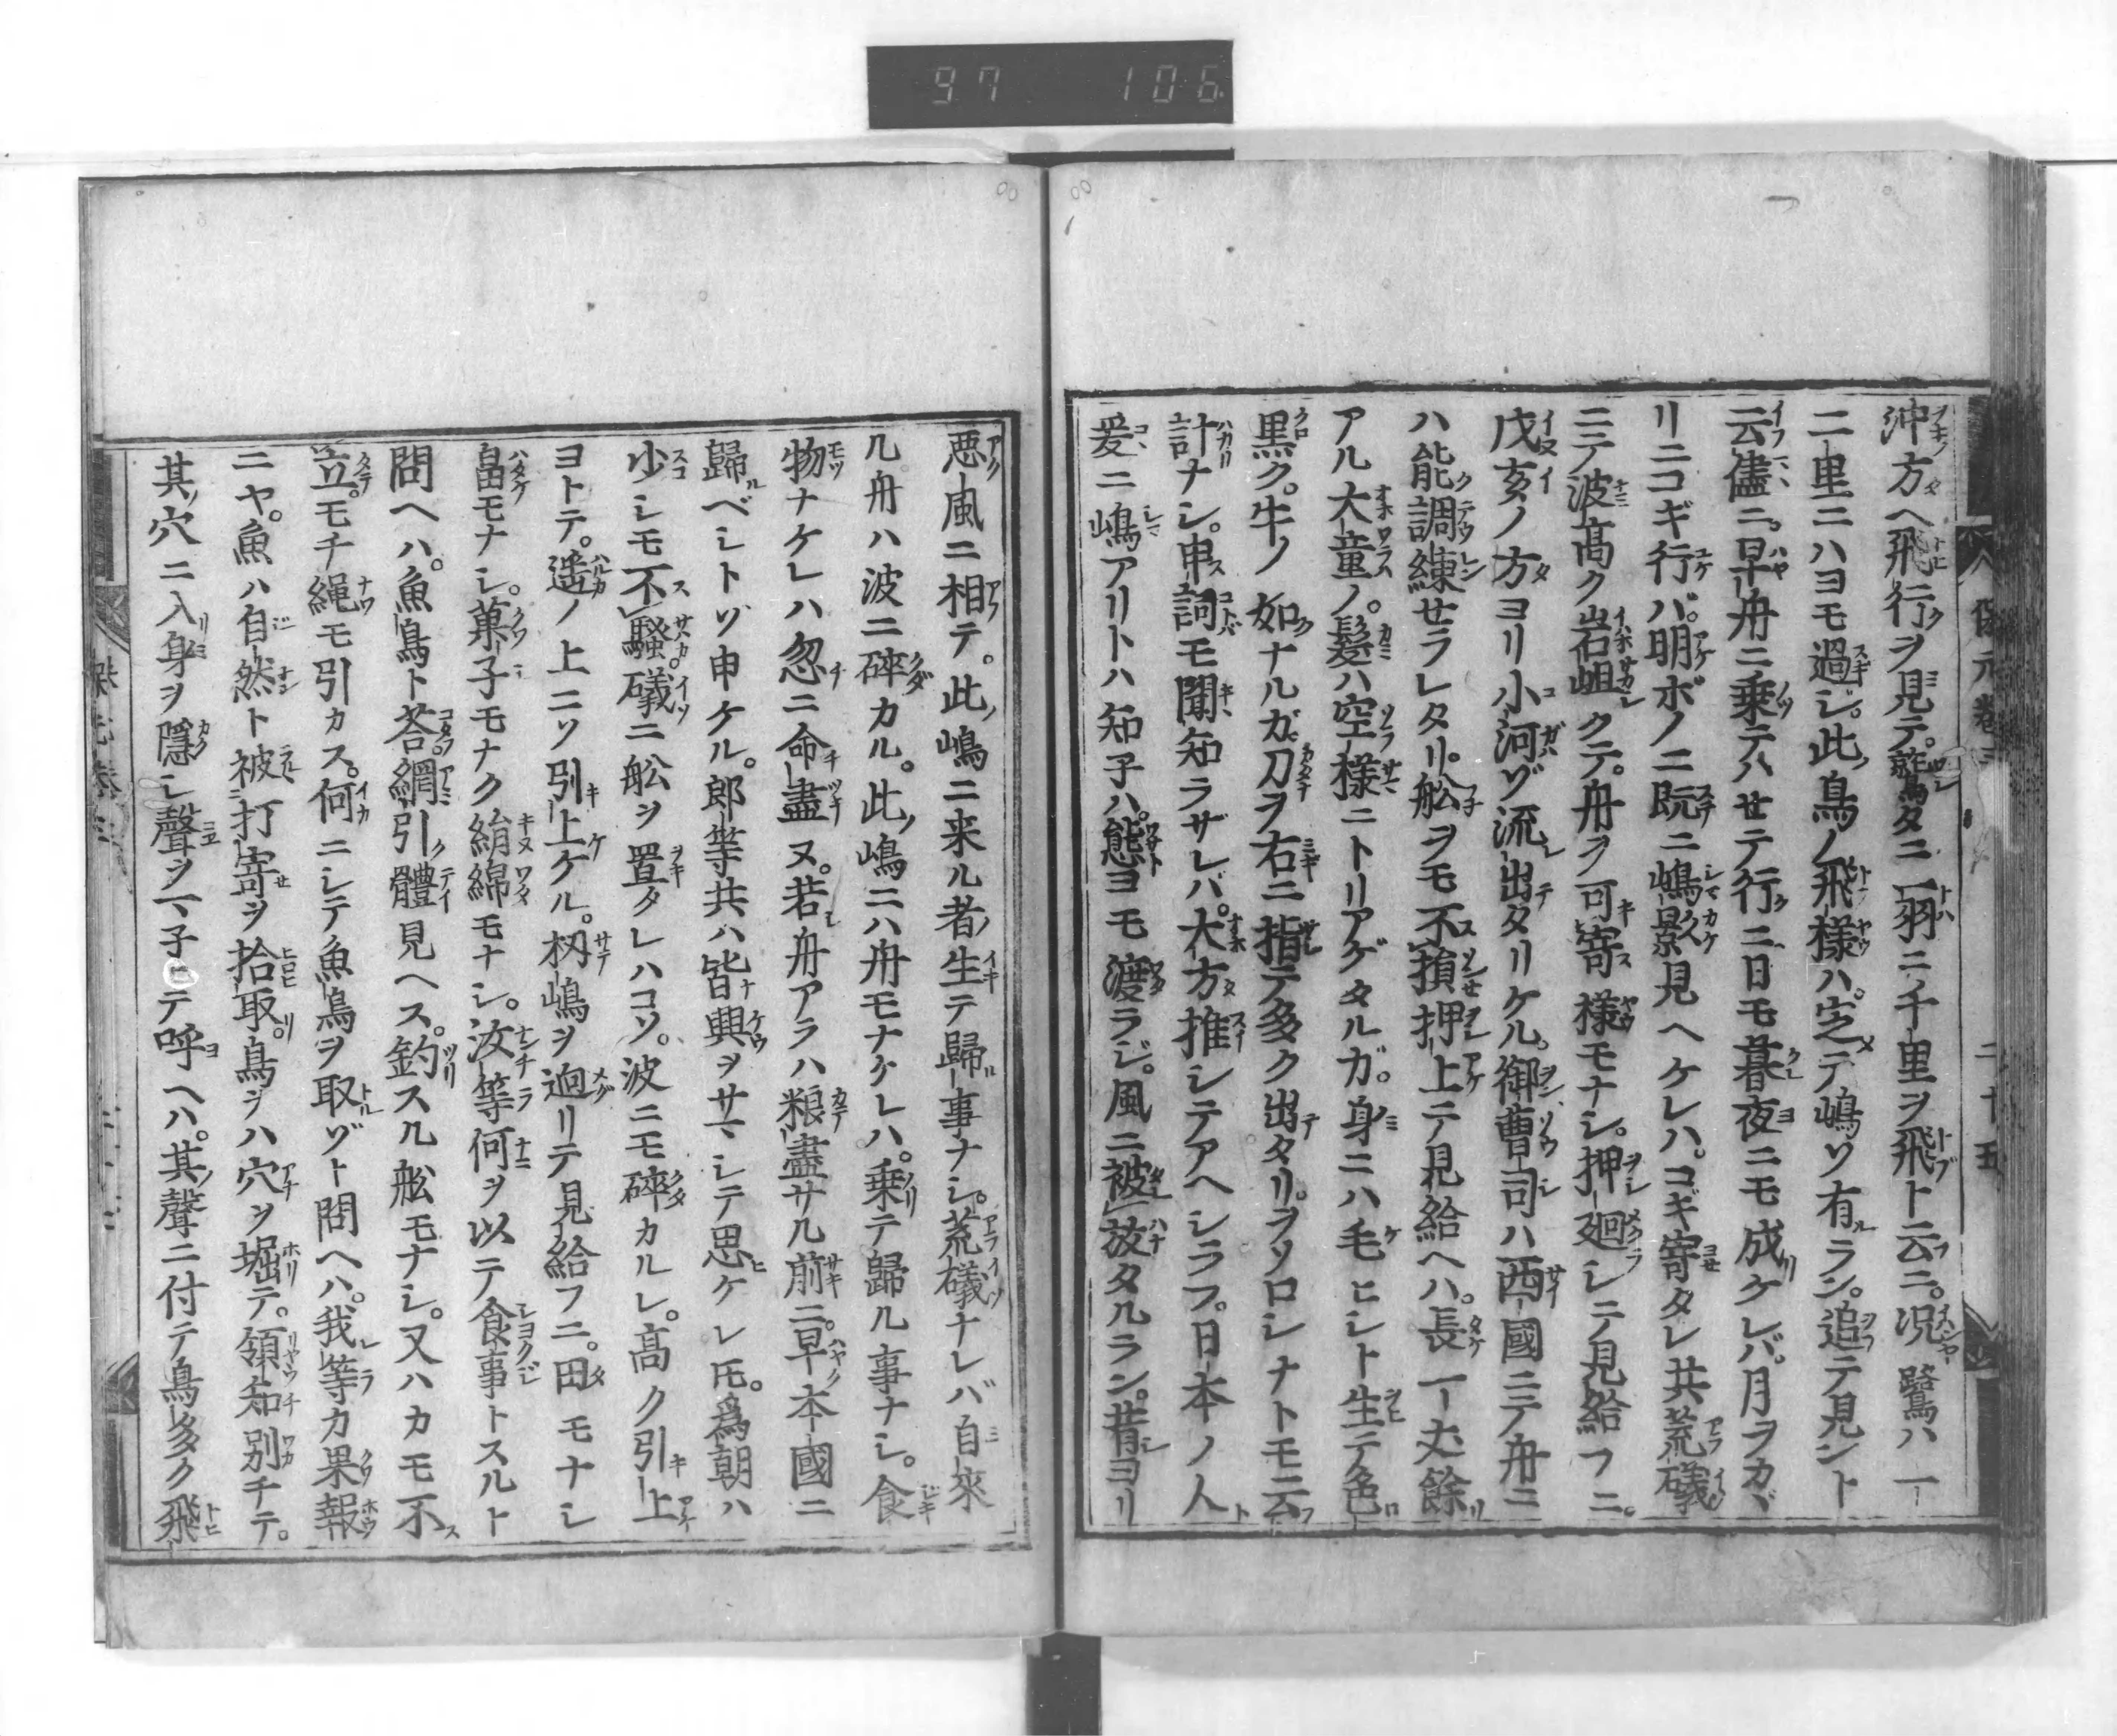 97 106
保元巻三 二十五
沖方ヘ飛行ヲ見テ。鷲タニ一羽ニ千里ヲ飛ト云ニ。况鷺ハ一
二里ニハヨモ過ジ。此鳥ノ飛様ハ。定テ嶋ソ有ラン。追テ見ント
云儘ニ。早舟ニ乗テハせテ行ニ日モ暮夜ニモ成ケレバ。月ヲカヾ
リニコギ行バ。明ボノニ既ニ嶋景見ヘケレハ。コギ寄タレ共荒礒
ニテ波髙ク岩岨クテ。舟ヲ可寄様モナシ。押廻シテ見給フニ。
戌亥ノ方ヨリ小河ゾ流出タリケル。御曹司ハ西國ニテ舟ニ
ハ能調練せラレタリ。舩ヲモ不損押上テ見給ヘハ。長一丈餘
アル大童ノ。髪ハ空様ニトリアゲタルガ。身ニハ毛ヒシト生テ色
黒ク。牛ノ如ナルガ刀ヲ右ニ指テ多ク出タリ。ヲソロシナトモ云
計ナシ。申詞モ聞知ラザレバ。大方推シテアヘシラフ。日本ノ人
爰ニ嶋アリトハ知子ハ。態ヨモ渡ラジ。風ニ被放タルラン。昔ヨリ
悪風ニ相テ。此嶋ニ来ル者生テ歸事ナシ。荒礒ナレバ自來
ル舟ハ波ニ碎カル。此嶋ニハ舟モナケレハ。乗テ歸ル事ナシ。食
物ナケレハ忽ニ命盡ヌ。若舟アラハ粮盡サル前ニ。早本國ニ
歸ベシトゾ申ケル。郎等共ハ皆興ヲサマシテ思ケレ𪜈。爲朝ハ
少シモ不騒。礒ニ舩ヲ置タレハコソ。波ニモ碎カルレ。髙ク引上
ヨトテ。遥ノ上ニソ引上ケル。扨嶋ヲ廻リテ見給フニ。田モナシ
畠モナシ。菓子モナク絹綿モナシ。汝等何ヲ以テ食事トスルト
問ヘハ。魚鳥ト荅。網引體見ヘス。釣スル舩モナシ。又ハカモ不
立。モチ縄モ引カス。何ニシテ魚鳥ヲ取ゾト問ヘハ。我等カ果報
ニヤ。魚ハ自然ト被打寄ヲ拾取。鳥ヲハ穴ヲ堀テ。領知別チテ。
其穴ニ入身ヲ隱シ聲ヲマ子ヒテ呼ヘハ。其聲ニ付テ鳥多ク飛